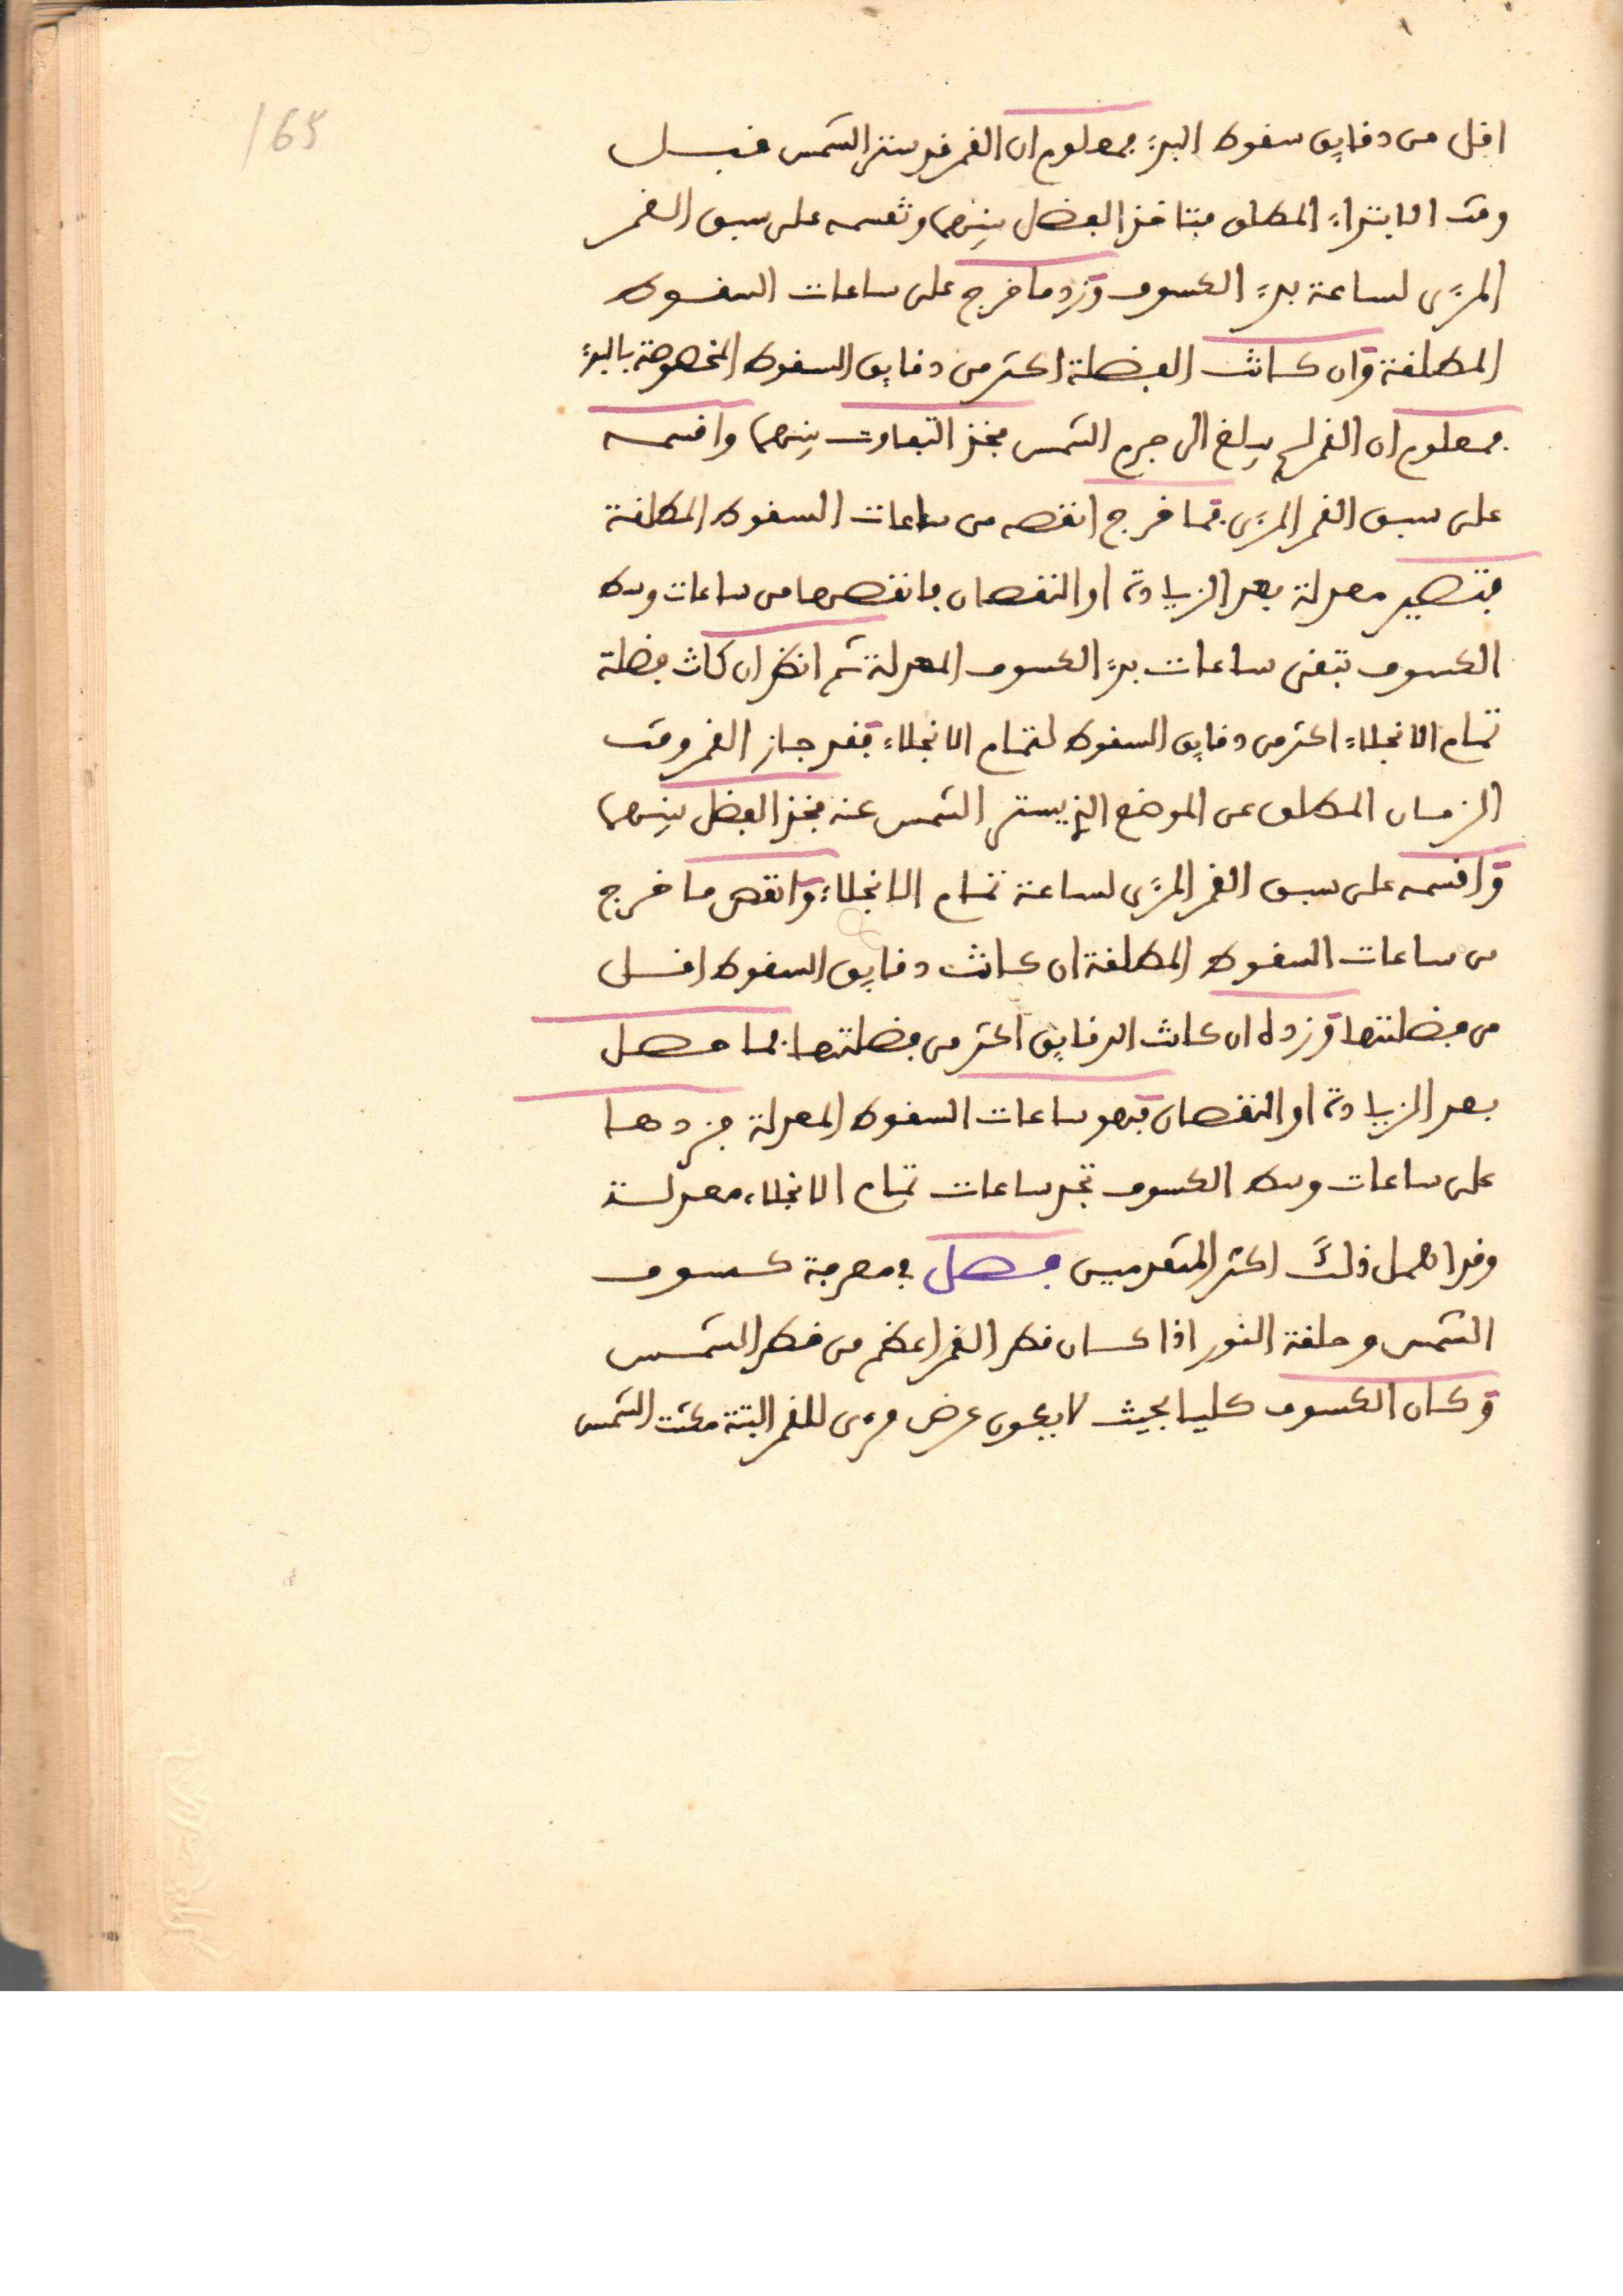 165
اقل من دقايق سقوط البدء فمعلوم ان القمر قد ستر الشمس قبل
وقت الابتداء المطلق فتاخذ الفضل بينهما وتقسمه على سبق القمر
المرءى لساعة بدء الكسوف وزد ما خرج على ساعات السقوط
المطلقة وان كانت الفضلة اكثر من دقايق السقوط المخصوصة بالبدء
فمعلوم ان القمر لم يبلغ الى جرم الشمس فخذ التفاوت بينهما واقسمه
على سبق القمر المرءى فما خرج انقصه من ساعات السقوط المطلقة
فتصير معدلة بعد الزيادة او النقصان فانقصها من ساعات وسط
الكسوف تبقى ساعات بدء الكسوف المعدلة ثم انظر ان كانت فضلة
تمام الانجلاء اكثر من دقايق السقوط لتمام الانجلاء فقد جاز القمر وقت
الزمان المطلق عن الموضع الذي يستر الشمس عنه فخذ الفضل بينهما
واقسمه على سبق القمر المرءى لساعة تمام الانجلاء وانقص ما خرج
من ساعات السقوط المطلقة ان كانت دقايق السقوط اقل
من فضلتها وزده ان كانت الدقايق اكثر من فضلتها فما حصل
بعد الزيادة او النقصان فهو ساعات السقوط المعدلة فزدها
على ساعات وسط الكسوف تجد ساعات تمام الانجلاء معدلة
وقد اهمل ذلك اكثر المتقدمين فصل في معرفة كسوف
الشمس وحلقة النور اذا كان قطر القمر اعظم من قطر الشمس
وكان الكسوف كليا بحيث لا يكون عرض مرءى للقمر البتة مكثت الشمس